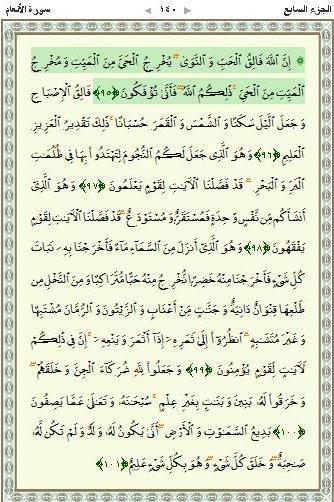 الجزء السابع ١٤٠ سورة الأنعام
۞ إِنَّ ٱللَّهَ فَالِقُ ٱلْحَبِّ وَٱلنَّوَىٰ ۖ يُخْرِجُ ٱلْحَىَّ مِنَ ٱلْمَيِّتِ وَمُخْرِجُ
ٱلْمَيِّتِ مِنَ ٱلْحَىِّ ۚ ذَٰلِكُمُ ٱللَّهُ ۖ فَأَنَّىٰ تُؤْفَكُونَ ﴿٩٥﴾ فَالِقُ ٱلْإِصْبَاحِ
وَجَعَلَ ٱلَّيْلَ سَكَنًا وَٱلشَّمْسَ وَٱلْقَمَرَ حُسْبَانًا ۚ ذَٰلِكَ تَقْدِيرُ ٱلْعَزِيزِ
ٱلْعَلِيمِ ﴿٩٦﴾ وَهُوَ ٱلَّذِى جَعَلَ لَكُمُ ٱلنُّجُومَ لِتَهْتَدُوا۟ بِهَا فِى ظُلُمَٰتِ
ٱلْبَرِّ وَٱلْبَحْرِ ۗ قَدْ فَصَّلْنَا ٱلْءَايَٰتِ لِقَوْمٍ يَعْلَمُونَ ﴿٩٧﴾ وَهُوَ ٱلَّذِىٓ
أَنشَأَكُم مِّن نَّفْسٍ وَٰحِدَةٍ فَمُسْتَقَرٌّ وَمُسْتَوْدَعٌ ۗ قَدْ فَصَّلْنَا ٱلْءَايَٰتِ لِقَوْمٍ
يَفْقَهُونَ ﴿٩٨﴾ وَهُوَ ٱلَّذِىٓ أَنزَلَ مِنَ ٱلسَّمَآءِ مَآءً فَأَخْرَجْنَا بِهِۦ نَبَاتَ
كُلِّ شَىْءٍ فَأَخْرَجْنَا مِنْهُ خَضِرًا نُّخْرِجُ مِنْهُ حَبًّا مُّتَرَاكِبًا وَمِنَ ٱلنَّخْلِ مِن
طَلْعِهَا قِنْوَانٌ دَانِيَةٌ وَجَنَّٰتٍ مِّنْ أَعْنَابٍ وَٱلزَّيْتُونَ وَٱلرُّمَّانَ مُشْتَبِهًا
وَغَيْرَ مُتَشَٰبِهٍ ۗ ٱنظُرُوٓا۟ إِلَىٰ ثَمَرِهِۦٓ إِذَآ أَثْمَرَ وَيَنْعِهِۦٓ ۚ إِنَّ فِى ذَٰلِكُمْ
لَءَايَٰتٍ لِّقَوْمٍ يُؤْمِنُونَ ﴿٩٩﴾ وَجَعَلُوا۟ لِلَّهِ شُرَكَآءَ ٱلْجِنَّ وَخَلَقَهُمْ ۖ
وَخَرَقُوا۟ لَهُۥ بَنِينَ وَبَنَٰتٍۭ بِغَيْرِ عِلْمٍ ۚ سُبْحَٰنَهُۥ وَتَعَٰلَىٰ عَمَّا يَصِفُونَ
﴿١٠٠﴾ بَدِيعُ ٱلسَّمَٰوَٰتِ وَٱلْأَرْضِ ۖ أَنَّىٰ يَكُونُ لَهُۥ وَلَدٌ وَلَمْ تَكُن لَّهُۥ
صَٰحِبَةٌ ۖ وَخَلَقَ كُلَّ شَىْءٍ ۖ وَهُوَ بِكُلِّ شَىْءٍ عَلِيمٌ ﴿١٠١﴾